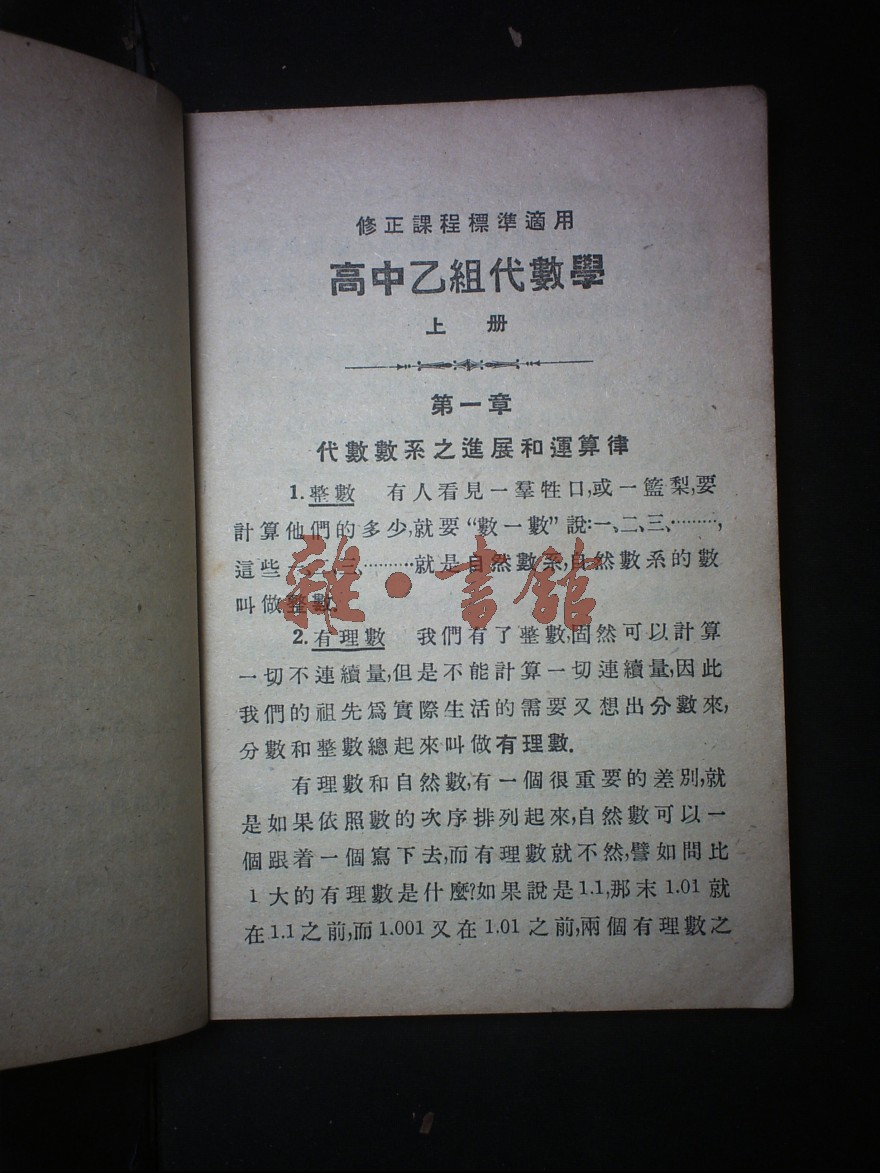 修正課程標準適用
高中乙組代數學
上 册
第一章
代數數系之進展和運算律
1. 整數 有人看見一羣牲口,或一籃梨,要
計算他們的多少,就要“數一數”說:一、二、三、………,
這些一、二、三、………就是自然數系,自然數系的數
叫做整數.
2. 有理數 我們有了整數,固然可以計算
一切不連續量,但是不能計算一切連續量,因此
我們的祖先爲實際生活的需要又想出分數來,
分數和整數總起來叫做有理數.
有理數和自然數,有一個很重要的差別,就
是如果依照數的次序排列起來,自然數可以一
個跟着一個寫下去,而有理數就不然,譬如問比
1 大的有理數是什麼?如果說是1.1,那末 1.01 就
在 1.1 之前,而 1.001 又在 1.01 之前,兩個有理數之
雜·書館